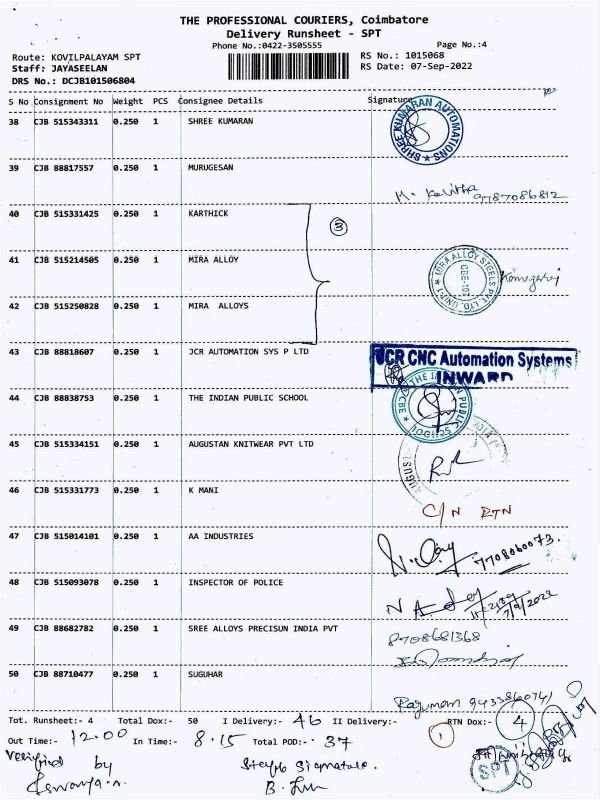 THE PROFESSIONAL COURIERS, Coimbatore
Delivery Runsheet - SPT
Phone No.:0422-3505555 Page No.:4
Route: KOVILPALAYAM SPT RS No.: 1015068
Staff: JAYASEELAN RS Date: 07-Sep-2022
DRS No.: DCJB101506804
S No Consignment No Weight PCS Consignee Details Signature
38 CJB 515343311 0.250 1 SHREE KUMARAN SHREE KUMARAN AUTOMATIONS
39 CJB 88817557 0.250 1 MURUGESAN
M. Kavitha 9787086812
40 CJB 515331425 0.250 1 KARTHICK
3
41 CJB 515214505 0.250 1 MIRA ALLOY MIRA ALLOY STEELS PVT. LTD.
42 CJB 515250828 0.250 1 MIRA ALLOYS
43 CJB 88818607 0.250 1 JCR AUTOMATION SYS P LTD JCR CNC Automation Systems
INWARD
44 CJB 88838753 0.250 1 THE INDIAN PUBLIC SCHOOL
45 CJB 515334151 0.250 1 AUGUSTAN KNITWEAR PVT LTD
46 CJB 515331773 0.250 1 K MANI
C/N RTN
47 CJB 515014101 0.250 1 AA INDUSTRIES
7708060073.
48 CJB 515093078 0.250 1 INSPECTOR OF POLICE
7/9/2022
49 CJB 88682782 0.250 1 SREE ALLOYS PRECISUN INDIA PVT
8708681368
50 CJB 88710477 0.250 1 SUGUHAR
Tot. Runsheet:- 4 Total Dox:- 50 I Delivery:- 46 II Delivery:- RTN Dox:- 4
Out Time:- 12.00 In Time:- 8.15 Total POD:- 37
1
Verified by Staff Signature.
SPT